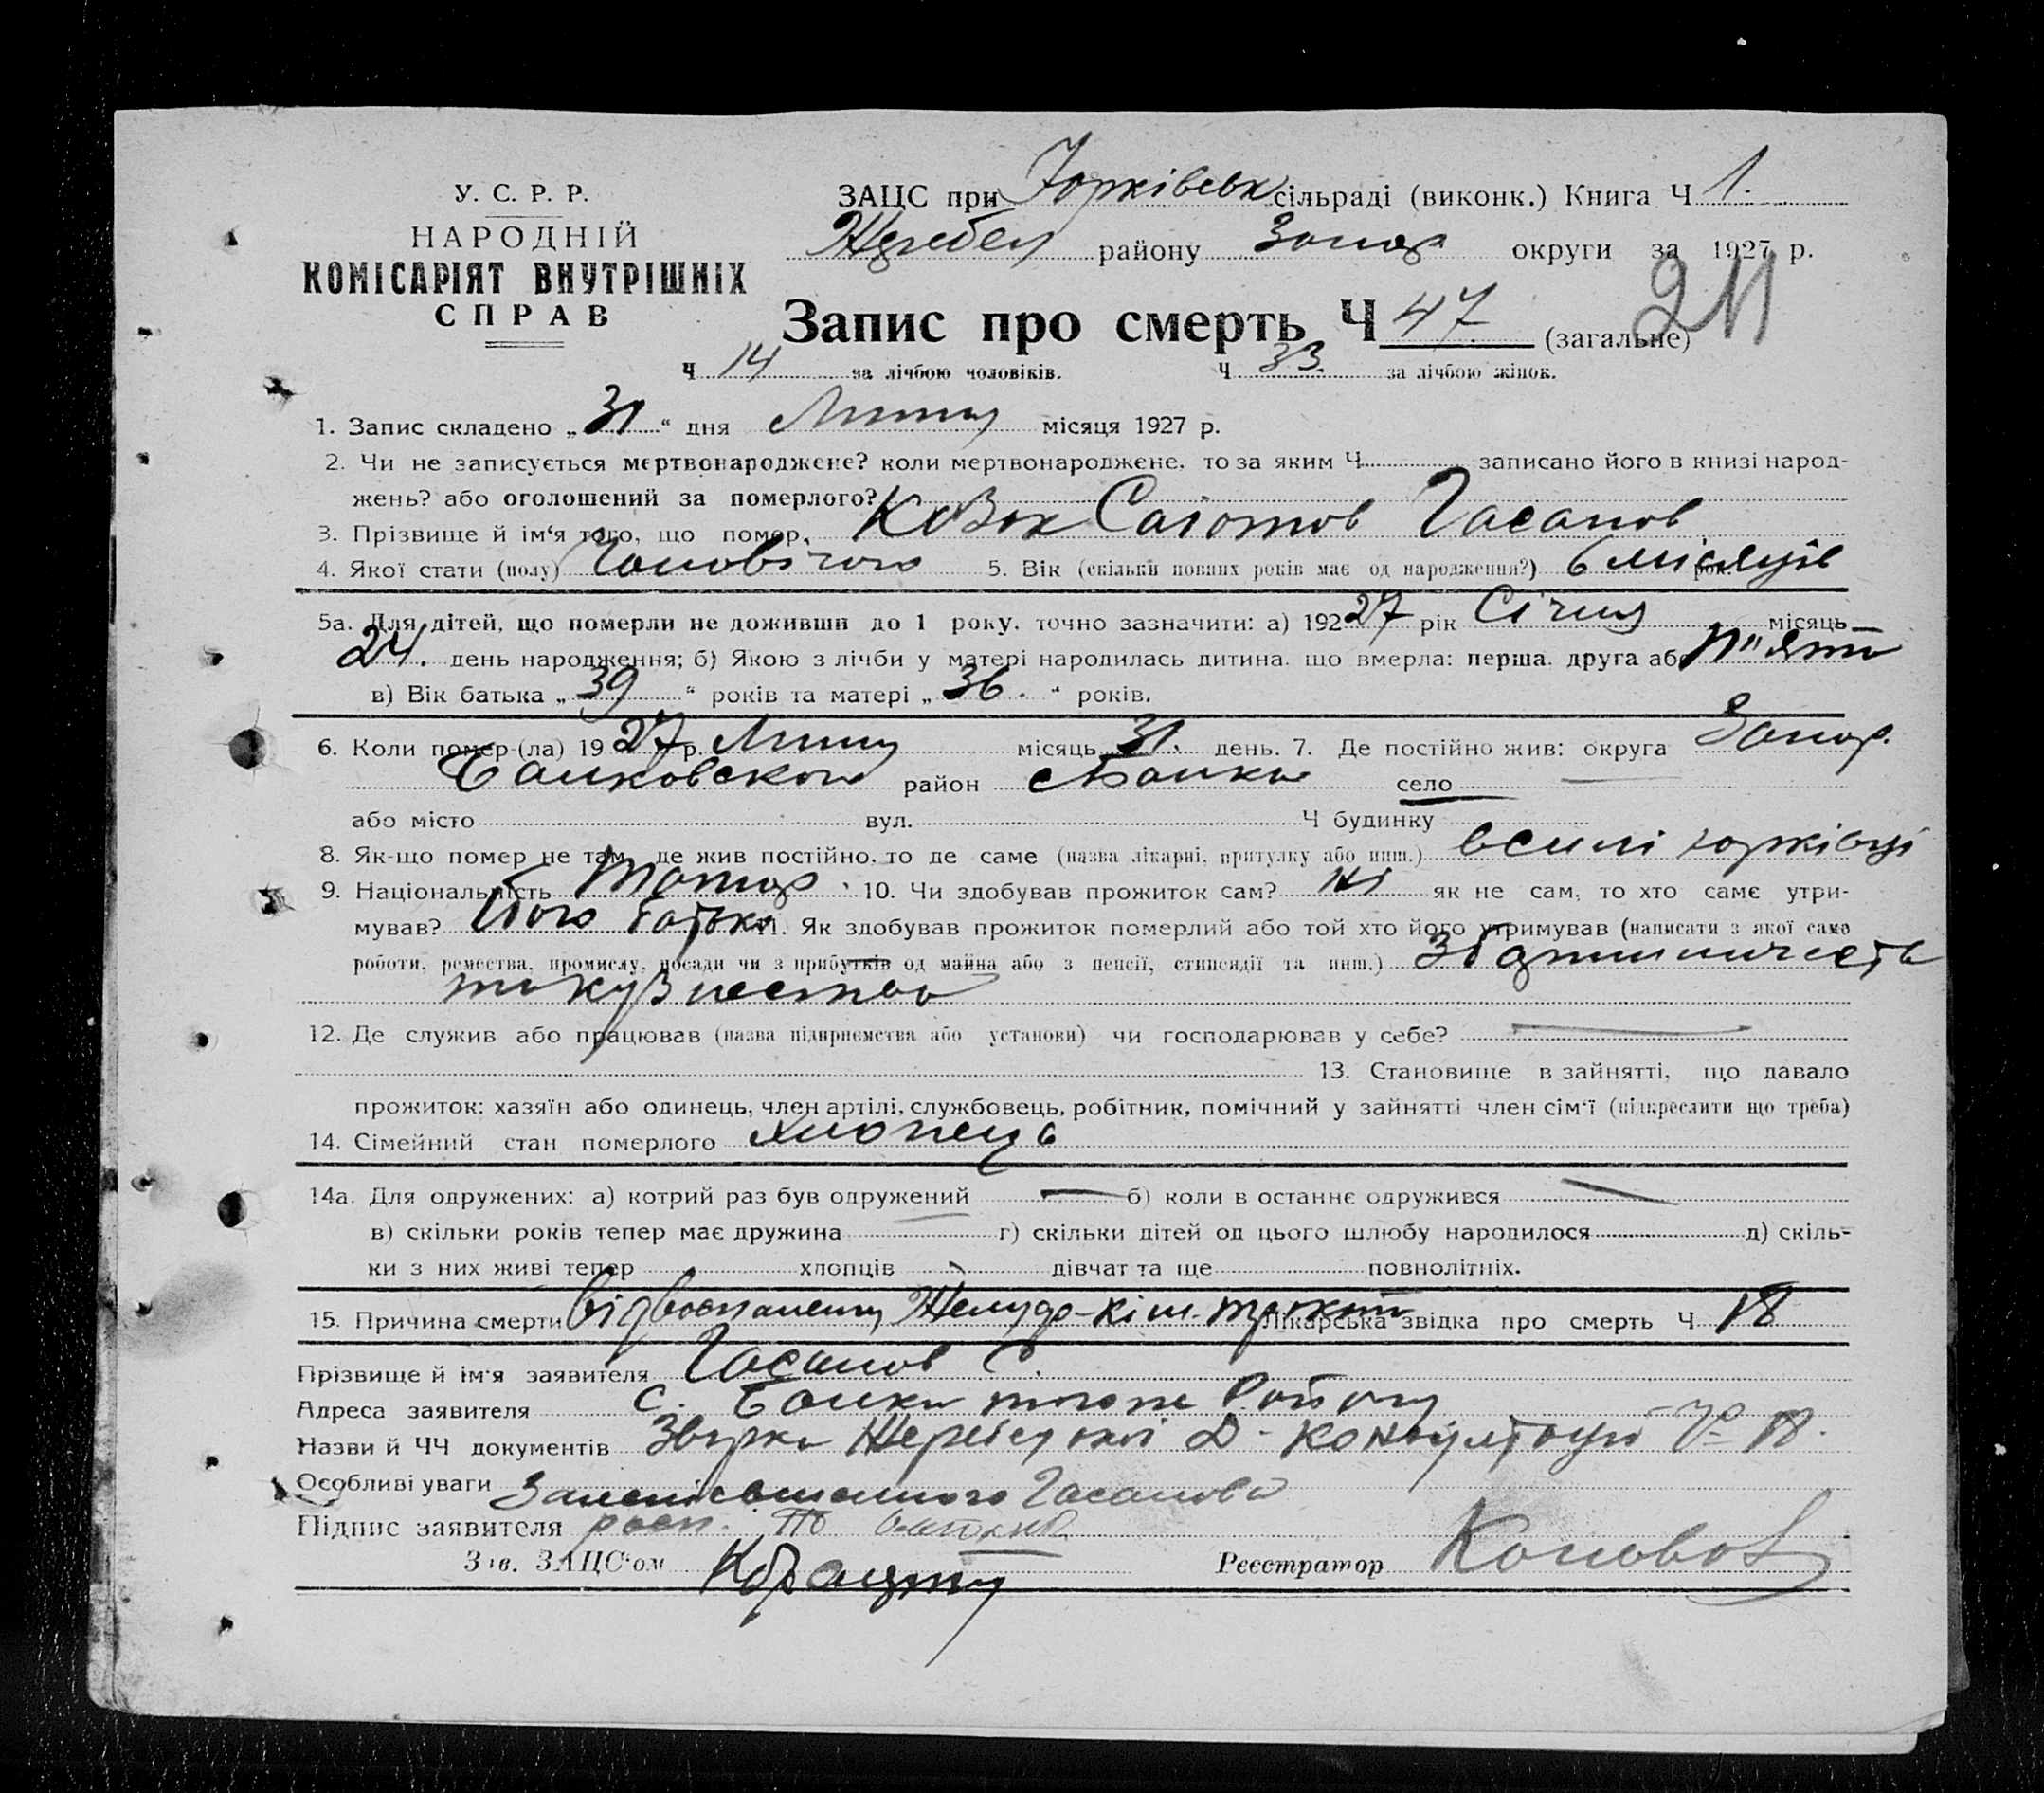 У. С. Р. Р.
НАРОДНІЙ
КОМІСАРІЯТ ВНУТРІШНІХ
СПРАВ
ЗАЦС при Юрківськ сільраді (виконк.) Книга Ч 1.
району Запор округи за 1927 р.
211
Запис про смерть Ч 47. (загальне)
Ч 14 за лічбою чоловіків. Ч 33. за лічбою жінок.
1. Запис складено „ 31 “ дня Липня місяця 1927 р.
2. Чи не записується мертвонароджене? коли мертвонароджене, то за яким Ч записано його в книзі народ-
жень? або оголошений за померлого?
3. Прізвище й ім‘я того, що помер, Гасанов
4. Якої стати (полу) Чоловічого 5. Вік (скільки повних років має од народження?) 6 місяців рок.
5а. Для дітей, що померли не доживши до 1 року, точно зазначити: а) 192 27 рік Січня місяць
24. день народження; б) Якою з лічби у матері народилась дитина, що вмерла: перша, друга або п"ята
в) Вік батька „ 39 “ років та матері „ 36. “ років.
6. Коли помер-(ла) 19 27 р. Липня місяць 31. день. 7. Де постійно жив: округа Запор.
Балковского район Балки село
або місто вул. Ч будинку
8. Як-що помер не там, де жив постійно, то де саме (назва лікарні, притулку або инш.) в селі Юрківці
9. Національність 10. Чи здобував прожиток сам? ні як не сам, то хто саме утри-
мував? Його батько 11. Як здобував прожиток померлий або той хто його утримував (написати з якої саме
роботи, ремества, промислу, посади чи з прибутків од майна або з пенсії, стипендії та инш.)
12. Де служив або працював (назва підприємства або установи) чи господарював у себе?
13. Становище в зайнятті, що давало
прожиток: хазяїн або одинець, член артілі, службовець, робітник, помічний у зайнятті член сім‘ї (підкреслити що треба)
14. Сімейний стан померлого хлопець
14а. Для одружених: а) котрий раз був одружений б) коли в останнє одружився
в) скільки років тепер має дружина г) скільки дітей од цього шлюбу народилося д) скіль-
ки з них живі тепер хлопців дівчат та ще повнолітніх.
15. Причина смерти Від воспаления Желудо-кіш. Лікарська звідка про смерть Ч 18
Прізвище й ім‘я заявителя Гасанов С.
Адреса заявителя с. Балки того ж Району
Назви й ЧЧ документів № 18.
Особливі уваги Гасанова
Підпис заявителя
Зав. ЗАЦС‘ом
Реєстратор